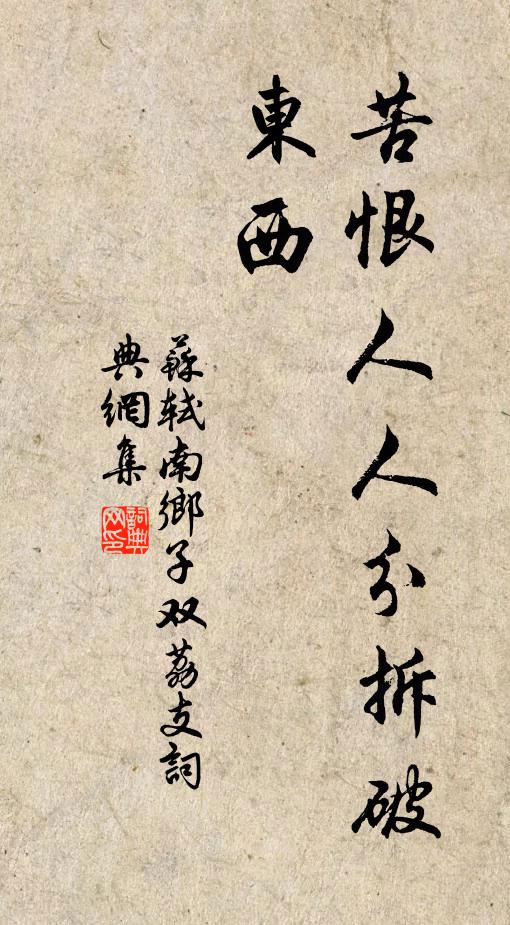 苦恨人人分拆破
東西
蘇軾南鄉子双荔支詞
典網集
詞典網印